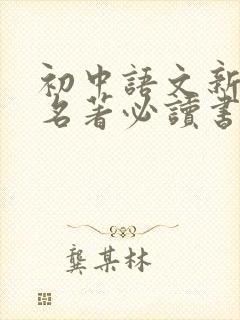 初中語文新
名著必讀書
龔某林